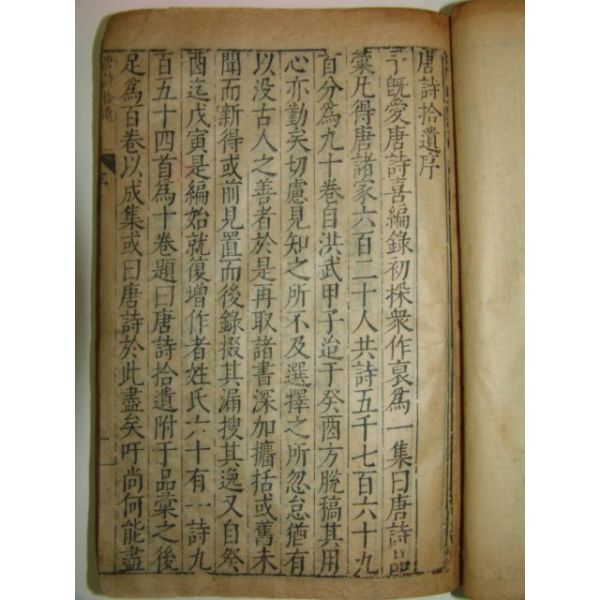 唐詩拾遺序
予旣愛唐詩喜編錄初採衆作裒爲一集曰唐詩品
彙凡得唐諸家六百二十人共詩五千七百六十九
首分爲九十卷自洪武甲子迨于癸酉方脫稿其用
心亦勤矣切慮見知之所不及選擇之所忽怠猶有
以没古人之善者於是再取諸書深加擴括或舊未
聞而新得或前見置而後錄掇其漏搜其逸又自癸
酉迄戊寅是編始就復增作者姓氏六十有一詩九
百五十四首爲十卷題曰唐詩拾遺附于品彙之後
足爲百卷以成集或曰唐詩於此盡矣吁尚何能盡
唐詩拾遺
序
一